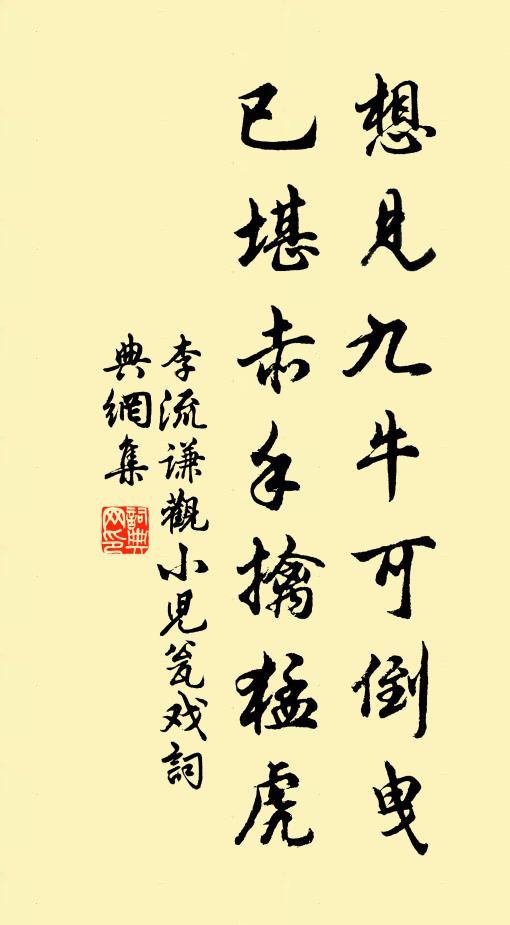 想見九牛可倒曳
已堪赤手擒猛虎
李流谦觀小兒瓮戏詞
典網集
詞典网印